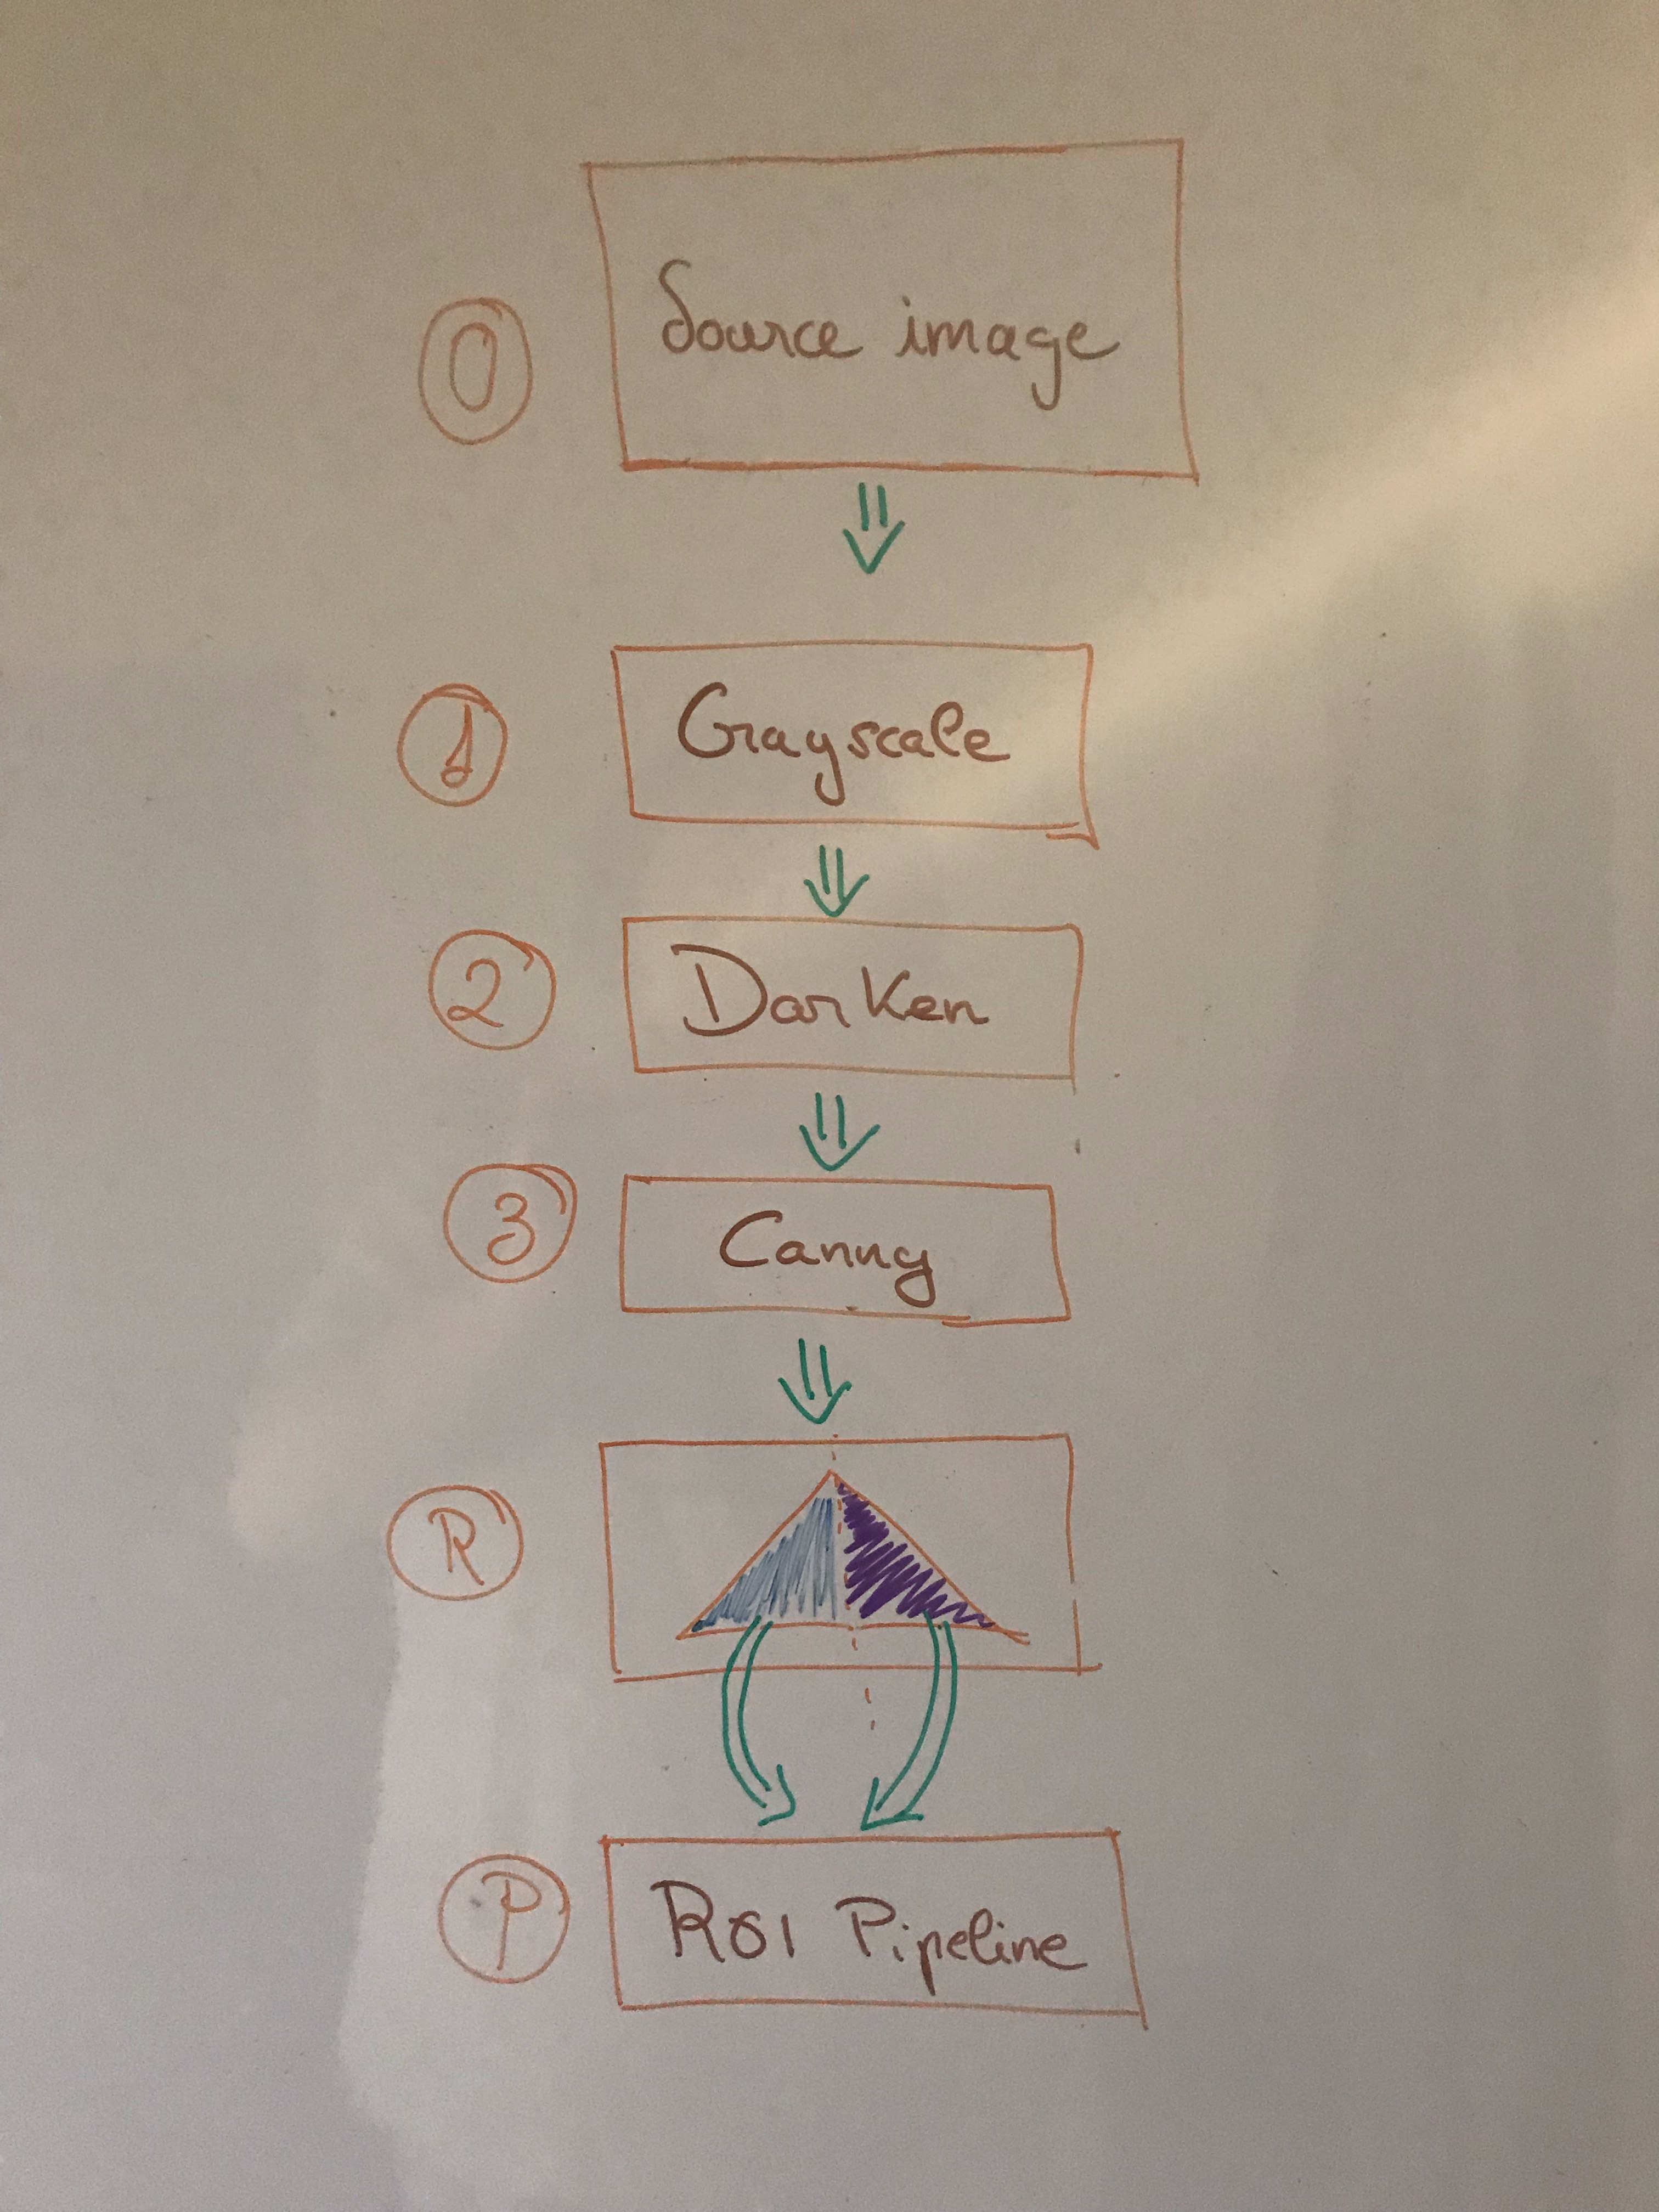 0
Source image
1
Grayscale
2
Darken
3
Canny
R
P
ROI Pipeline